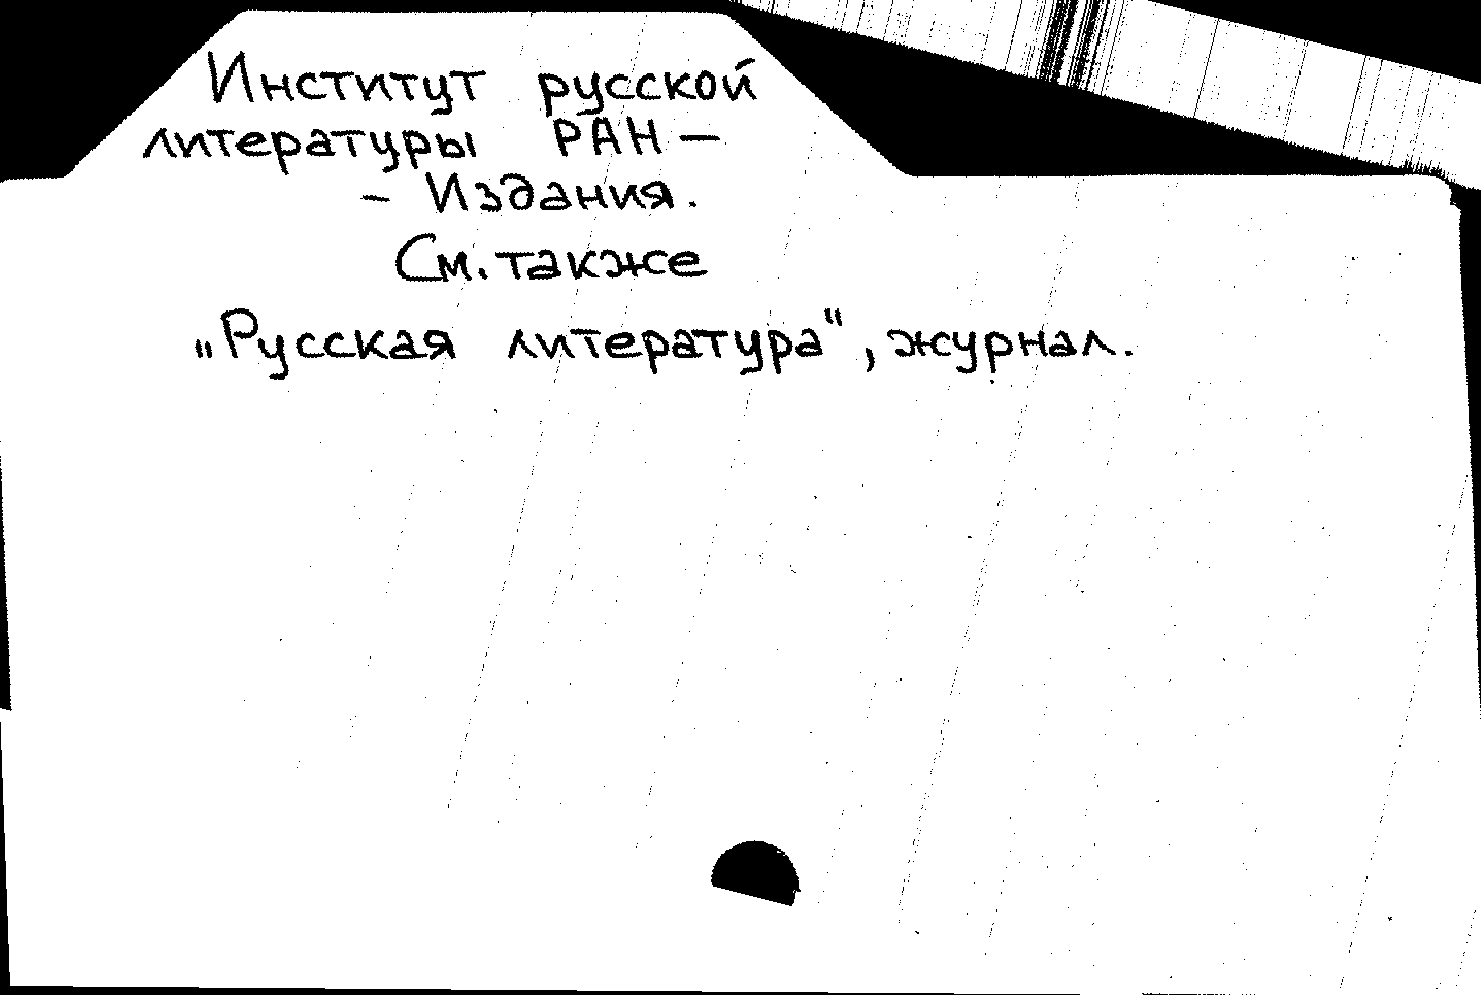 Институт русской
литературы РАН —
— Издания.
См. также
„Русская литература“, журнал.